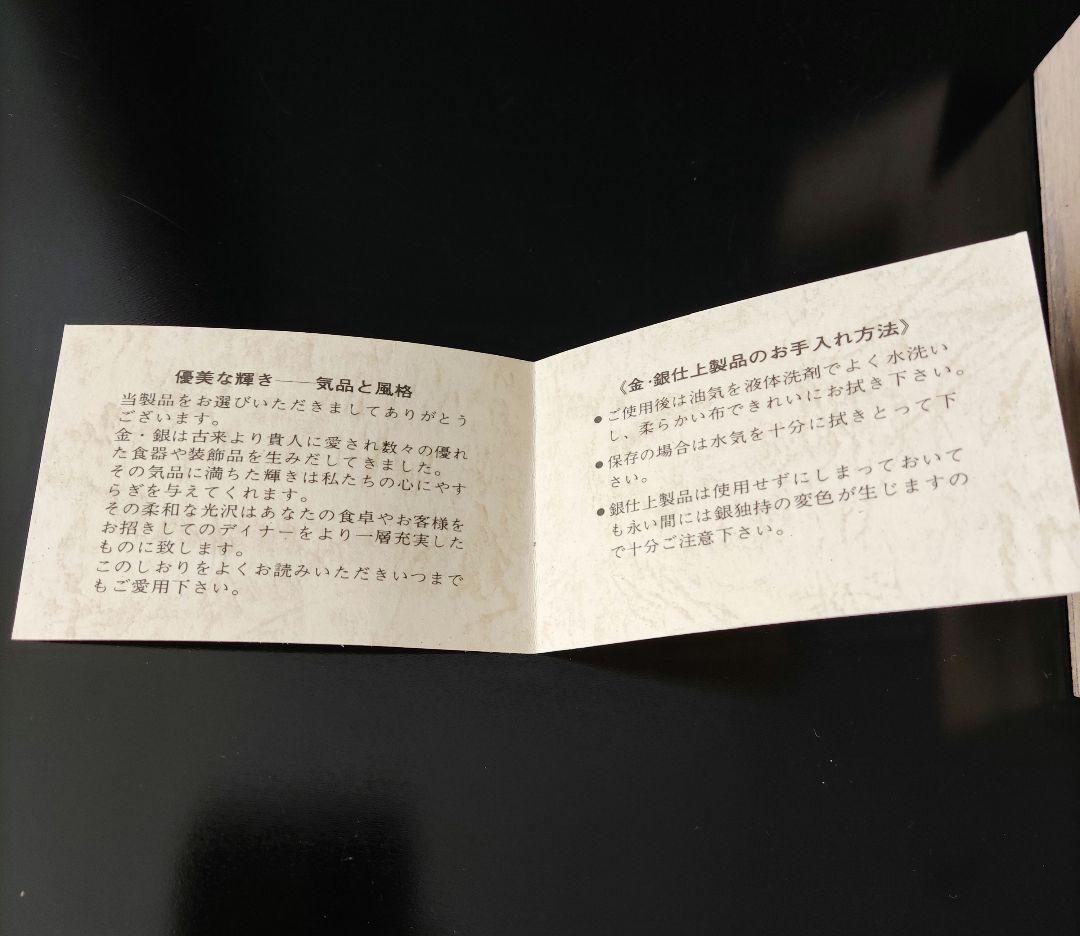 優美な輝き――気品と風格
当製品をお選びいただきましてありがとう
ございます。
金・銀は古来より貴人に愛され数々の優れ
た食器や装飾品を生みだしてきました。
その気品に満ちた輝きは私たちの心にやす
らぎを与えてくれます。
その柔和な光沢はあなたの食卓やお客様を
お招きしてのディナーをより一層充実した
ものに致します。
このしおりをよくお読みいただきいつまで
もご愛用下さい。
《金・銀仕上製品のお手入れ方法》
●ご使用後は油気を液体洗剤でよく水洗い
し、柔らかい布できれいにお拭き下さい。
●保存の場合は水気を十分に拭きとって下
さい。
●銀仕上製品は使用せずにしまっておいて
も永い間には銀独持の変色が生じますの
で十分ご注意下さい。